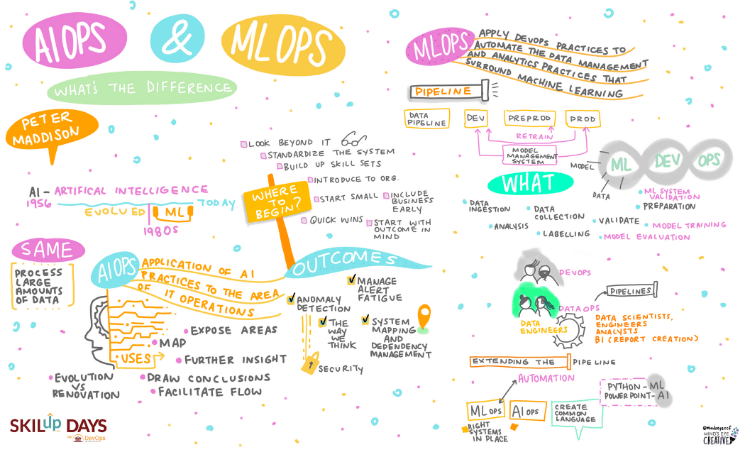 AIOPS
&
MLOPS
WHAT'S THE DIFFERENCE
PETER
MADDISON
AI - ARTIFICAL INTELLIGENCE
1956
TODAY
EVOLVED
ML
1980s
LOOK BEYOND IT
STANDARDIZE THE SYSTEM
BUILD UP SKILL SETS
INTRODUCE TO ORG.
WHERE
TO
BEGIN?
START SMALL
INCLUDE
BUSINESS
EARLY
QUICK WINS
START WITH
OUTCOME IN
MIND
SAME
PROCESS
LARGE
AMOUNTS
OF DATA
AIOPS
APPLICATION OF AI
PRACTICES TO THE AREA
OF IT OPERATIONS
USES
EXPOSE AREAS
MAP
FURTHER INSIGHT
EVOLUTION
VS
RENOVATION
DRAW CONCLUSIONS
FACILITATE FLOW
OUTCOMES
MANAGE
ALERT
FATIGUE
ANOMALY
DETECTION
THE
WAY WE
THINK
SYSTEM
MAPPING
AND
DEPENDENCY
MANAGEMENT
SECURITY
MLOPS
APPLY DEVOPS PRACTICES TO
AUTOMATE THE DATA MANAGEMENT
AND ANALYTICS PRACTICES THAT
SURROUND MACHINE LEARNING
PIPELINE
DATA
PIPELINE
DEV
PREPROD
PROD
RETRAIN
MODEL
MANAGEMENT
SYSTEM
MODEL
ML
DEV
OPS
DATA
WHAT
DATA
INGESTION
ANALYSIS
DATA
COLLECTION
LABELLING
ML SYSTEM
VALIDATION
PREPARATION
VALIDATE
MODEL TRAINING
MODEL EVALUATION
DEVOPS
DATAOPS
DATA
ENGINEERS
PIPELINES
DATA SCIENTISTS,
ENGINEERS
ANALYSTS
BI (REPORT CREATION)
EXTENDING THE PIPELINE
AUTOMATION
PYTHON - ML
POWERPOINT - AI
MLOPS
AIOPS
CREATE
COMMON
LANGUAGE
RIGHT
SYSTEMS
IN PLACE
SKILup DAYS
DevOps
MIND'S EYE
CREATIVE